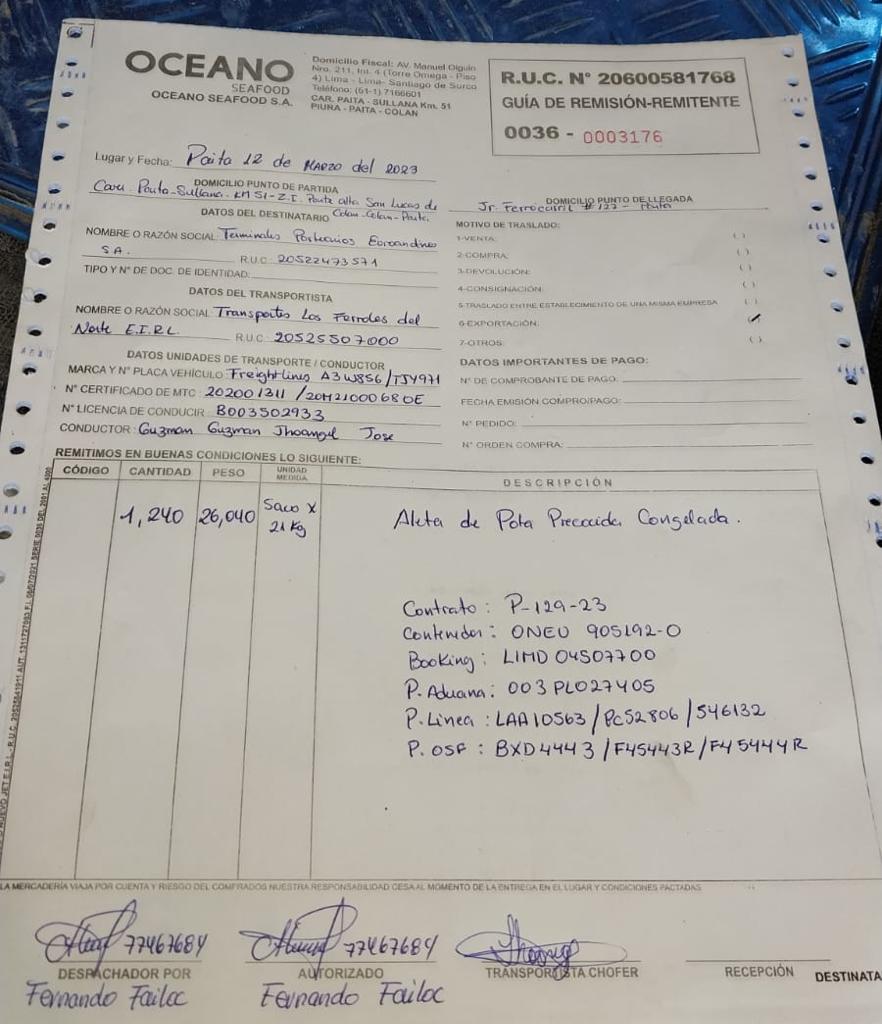 OCEANO
SEAFOOD
OCEANO SEAFOOD S.A.
Domicilio Fiscal: AV. Manuel Olguin
Nro. 211, Int. 4 (Torre Omega - Piso
4) Lima - Lima- Santiago de Surco
Teléfono: (51-1) 7166601
CAR. PAITA - SULLANA Km. 51
PIURA - PAITA - COLAN
R.U.C. N° 20600581768
GUÍA DE REMISIÓN-REMITENTE
0036 - 0003176
Lugar y Fecha: Paita 12 de MARZO del 2023
DOMICILIO PUNTO DE PARTIDA
Carr. Paita-Sullana. KM 51-Z.I. Parte alta San Lucas de
Colan-Colan-Paita.
DOMICILIO PUNTO DE LLEGADA
Jr. Ferrocarril #127 - Paita
DATOS DEL DESTINATARIO
NOMBRE O RAZÓN SOCIAL: Terminales Portuarios Euroandinos
S.A. R.U.C: 20522473571
TIPO Y N° DE DOC. DE IDENTIDAD:
DATOS DEL TRANSPORTISTA
NOMBRE O RAZÓN SOCIAL: Transportes Los Ferroles del
Norte E.I.R.L. R.U.C: 20525507000
DATOS UNIDADES DE TRANSPORTE / CONDUCTOR
MARCA Y N° PLACA VEHÍCULO: Freightliner A3W856/TJY971
N° CERTIFICADO DE MTC: 202001311 /20M21000680E
N° LICENCIA DE CONDUCIR: B003502933
CONDUCTOR: Guzman Guzman Jhoangel Jose
MOTIVO DE TRASLADO:
1-VENTA: ( )
2-COMPRA: ( )
3-DEVOLUCIÓN: ( )
4-CONSIGNACIÓN: ( )
5-TRASLADO ENTRE ESTABLECIMIENTO DE UNA MISMA EMPRESA ( )
6-EXPORTACIÓN: (✓)
7-OTROS: ( )
DATOS IMPORTANTES DE PAGO:
N° DE COMPROBANTE DE PAGO:
FECHA EMISIÓN COMPRO/PAGO:
N° PEDIDO:
N° ORDEN COMPRA:
REMITIMOS EN BUENAS CONDICIONES LO SIGUIENTE:
CÓDIGO CANTIDAD PESO UNIDAD MEDIDA DESCRIPCIÓN
1,240 26,040 Saco x 21 Kg Aleta de Pota Precocida Congelada.
Contrato: P-129-23
Contenedor: ONEU 905192-0
Booking: LIMD 04507700
P. Aduana: 003 PLO27405
P. Linea: LAA10563/PC52806/546132
P. OSF: BXD4443/F45443R/F45444R
LA MERCADERÍA VIAJA POR CUENTA Y RIESGO DEL COMPRADOS NUESTRA RESPONSABILIDAD CESA AL MOMENTO DE LA ENTREGA EN EL LUGAR Y CONDICIONES PACTADAS
77467684 77467684
DESPACHADOR POR AUTORIZADO TRANSPORTISTA CHOFER RECEPCIÓN DESTINATA
Fernando Failoc Fernando Failoc